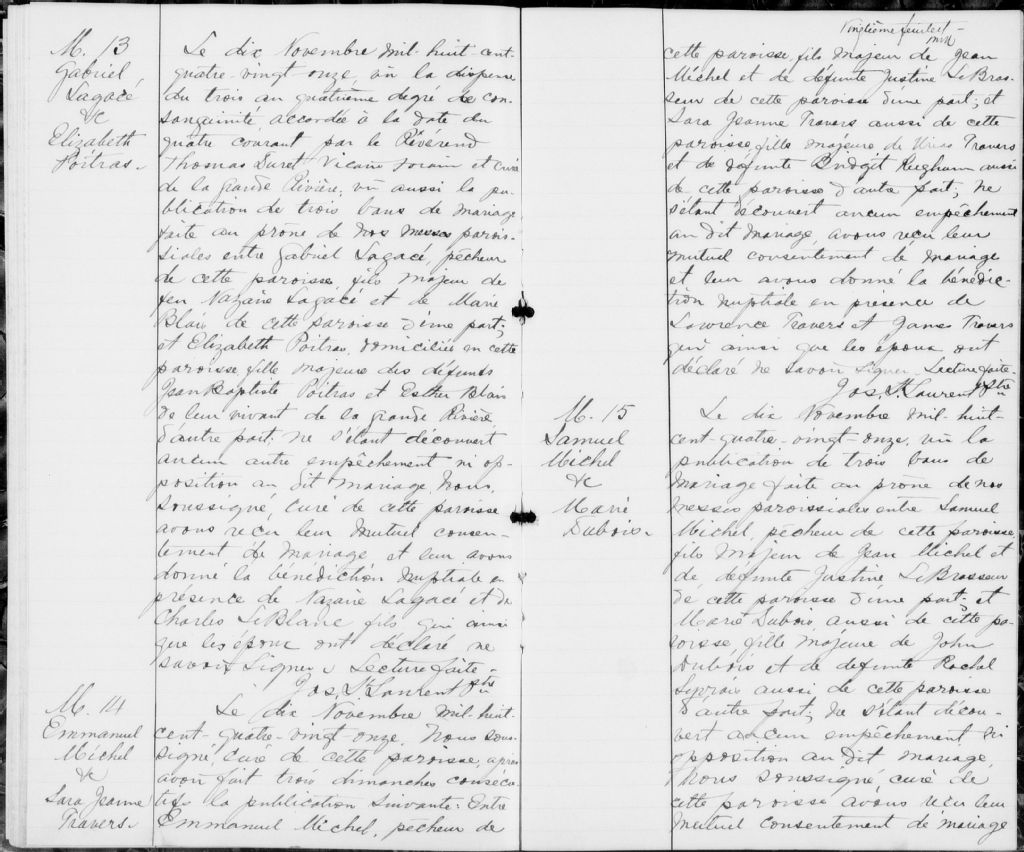 M. 13
Gabriel
Lagacé
&
Elizabeth
Poitras.
Le dix Novembre mil-huit cent-
quatre-vingt-onze, vû la dispense
du trois au quatrième degré de con-
sanguinité accordée à la date du
quatre courant par le Révérend
Thomas Duret Vicaire forain et curé
de la Grande Rivière; vû aussi la pu-
blication de trois bans de mariage
faite au prone de nos messes parois-
siales entre Gabriel Lagacé, pêcheur
de cette paroisse, fils majeur de
feu Nazaire Lagacé et de Marie
Blais de cette paroisse d'une part;
et Elizabeth Poitras, domiciliée en cette
paroisse, fille majeure des défunts
Jean Baptiste Poitras et Esther Blais
de leur vivant de la grande Rivière,
d'autre part: ne s'étant découvert
aucun autre empêchement ni op-
position au dit mariage, Nous,
soussigné, curé de cette paroisse
avons reçu leur mutuel consen-
tement de mariage et leur avons
donné la bénédiction nuptiale en
présence de Nazaire Lagacé et de
Charles LeBlanc fils qui ainsi
que les époux ont déclaré ne
savoir signer. Lecture faite.
Jos. St Laurent Ptre
M. 14
Emmanuel
Michel
&
Sara Jeanne
Travers.
Le dix Novembre mil-huit-
cent-quatre-vingt-onze, Nous sous-
signé, curé de cette paroisse, après
avoir fait trois dimanches consécu-
tifs la publication suivante: Entre
Emmanuel Michel, pêcheur de
Vingtième feuillet
cette paroisse, fils majeur de Jean
Michel et de défunte Justine LeBras-
seur de cette paroisse d'une part; et
Sara Jeanne Travers aussi de cette
paroisse, fille majeure de Travers
et de défunte Bridgit aussi
de cette paroisse d'autre part; ne
s'étant découvert aucun empêchement
au dit mariage, avons reçu leur
mutuel consentement de mariage
et leur avons donné la bénédic-
tion nuptiale en présence de
Lawrence Travers et James Travers
qui ainsi que les époux ont
déclaré ne savoir signer. Lecture faite.
Jos. St Laurent Ptre
M. 15
Samuel
Michel
&
Marie
Dubois.
Le dix Novembre mil-huit-
cent-quatre-vingt-onze, vû la
publication de trois bans de
mariage faite au prone de nos
messes paroissiales entre Samuel
Michel, pêcheur de cette paroisse
fils majeur de Jean Michel et
de défunte Justine LeBrasseur
de cette paroisse d'une part: et
Marie Dubois, aussi de cette pa-
roisse, fille majeure de John
Dubois et de défunte Rachel
aussi de cette paroisse
d'autre part; ne s'étant décou-
vert aucun empêchement ni
opposition au dit mariage,
Nous soussigné, curé de
cette paroisse avons reçu leur
mutuel consentement de mariage